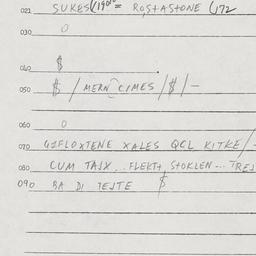 021 SUKES(/19010= ROSTASTONE (172
030 0
040 $
050 $ / MERN CIMES /$/-
060 0
070 GJFLOXTENE XALES QCL KITKE/-
080 CUM TAJX.. FLEKT+ STOKLEN... TREJ
090 BA DI TEJTE $